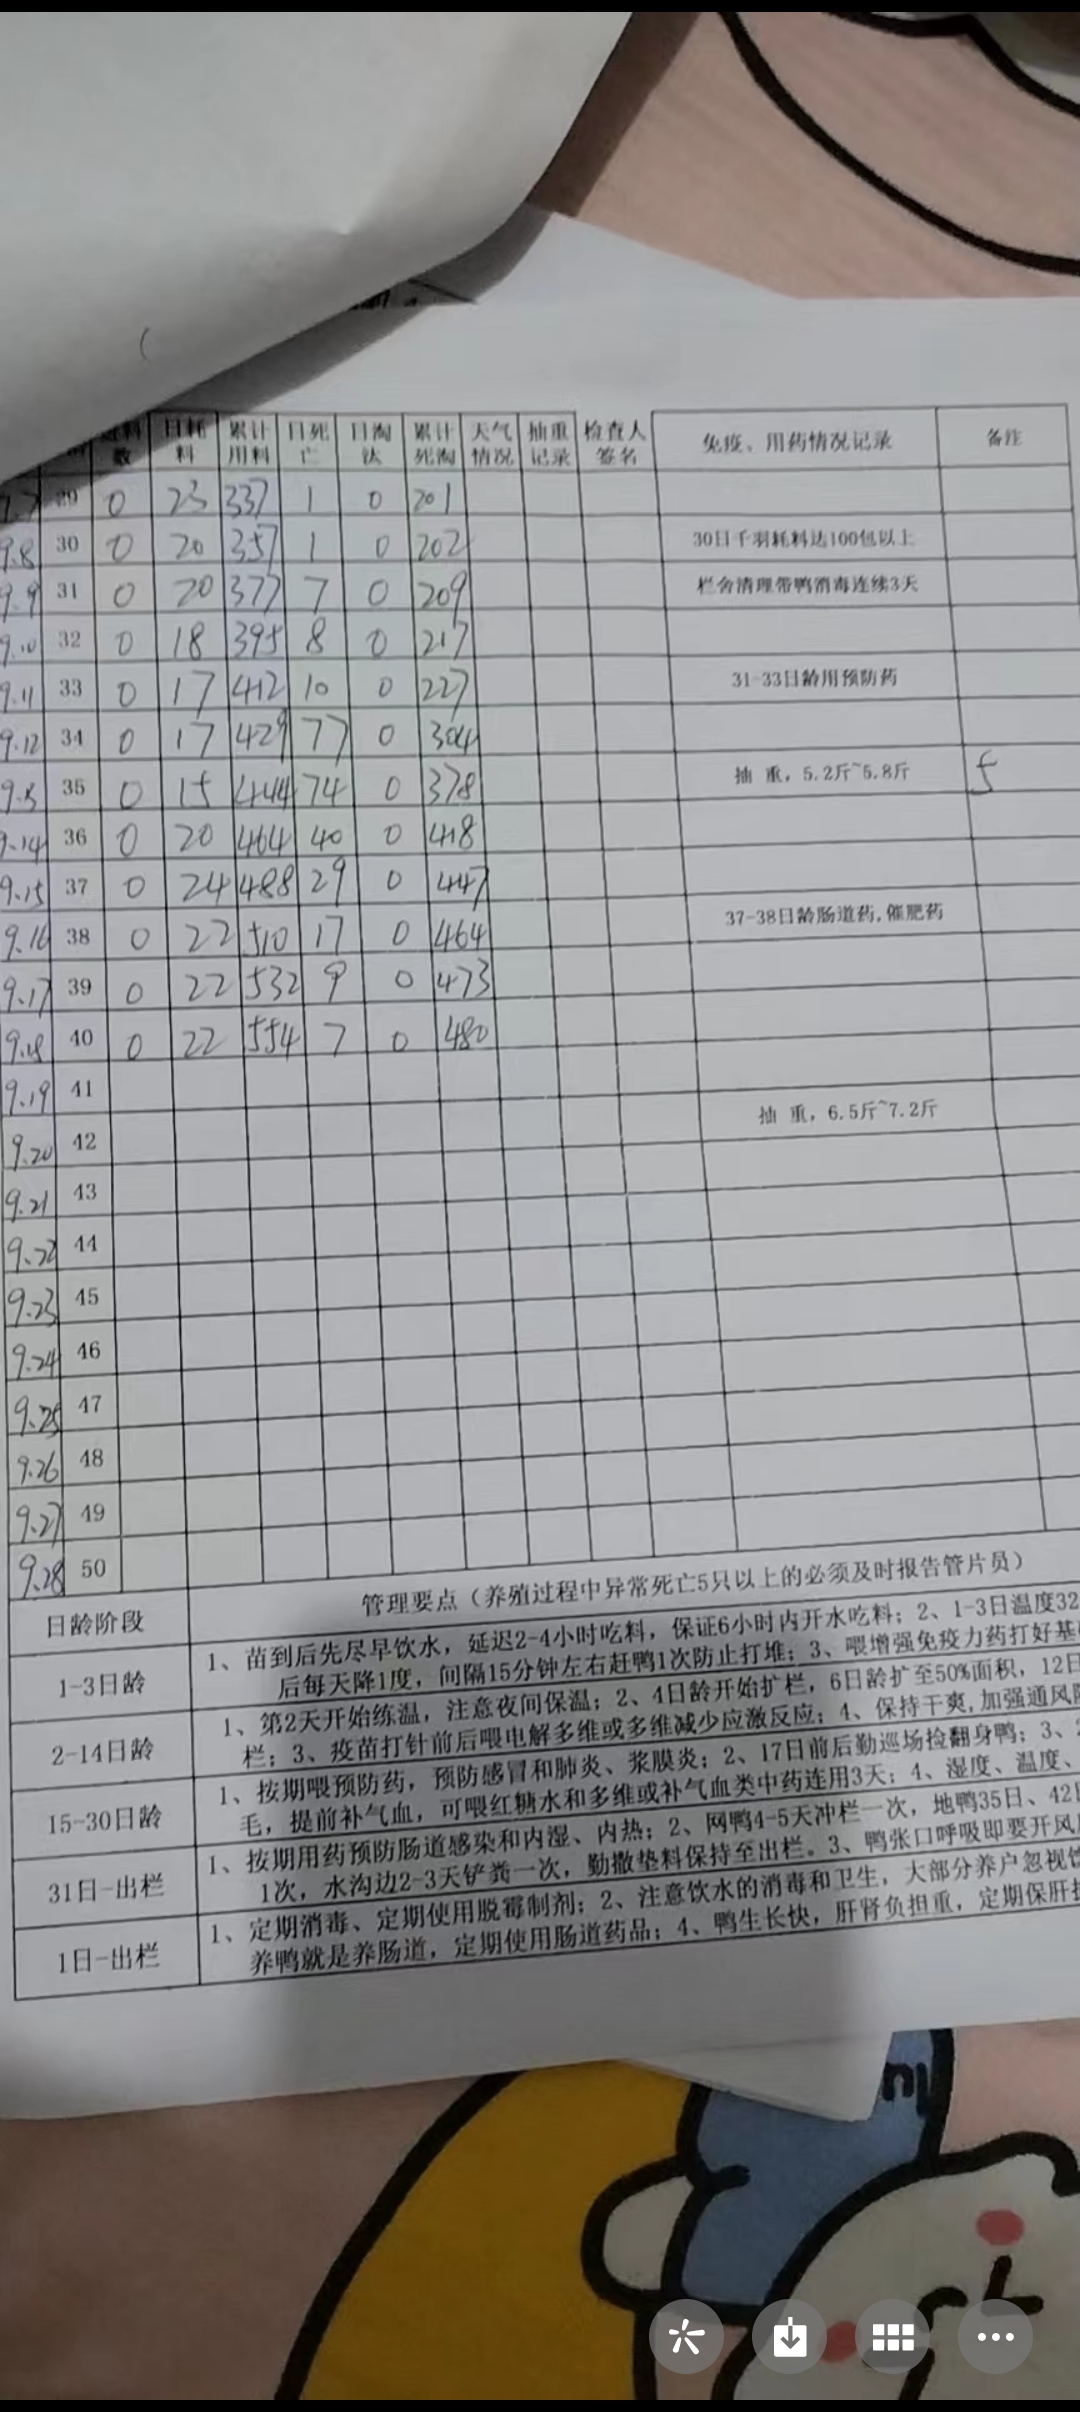 日耗料 累计用料 日死亡 日淘汰 累计死淘 天气情况 抽重记录 检查人签名 免疫、用药情况记录 备注
29 0 23 337 1 0 201
9.8 30 0 20 357 1 0 202 30日千羽耗料达100包以上
9.9 31 0 20 377 7 0 209 栏舍清理带鸭消毒连续3天
9.10 32 0 18 395 8 0 217
9.11 33 0 17 412 10 0 227 31-33日龄用预防药
9.12 34 0 17 429 77 0 304
35 0 15 444 74 0 378 抽 重，5.2斤~5.8斤 5
9.14 36 0 20 464 40 0 418
9.15 37 0 24 488 29 0 447
9.16 38 0 22 510 17 0 464 37-38日龄肠道药,催肥药
9.17 39 0 22 532 9 0 473
9.18 40 0 22 554 7 0 480
9.19 41
9.20 42 抽 重，6.5斤~7.2斤
9.21 43
9.22 44
9.23 45
9.24 46
9.25 47
9.26 48
9.27 49
9.28 50
日龄阶段 管理要点（养殖过程中异常死亡5只以上的必须及时报告管片员）
1-3日龄 1、苗到后先尽早饮水，延迟2-4小时吃料，保证6小时内开水吃料；2、1-3日温度32
后每天降1度，间隔15分钟左右赶鸭1次防止打堆；3、喂增强免疫力药打好基
2-14日龄 1、第2天开始练温，注意夜间保温；2、4日龄开始扩栏，6日龄扩至50%面积，12日
栏；3、疫苗打针前后喂电解多维或多维减少应激反应；4、保持干爽,加强通风
15-30日龄 1、按期喂预防药，预防感冒和肺炎、浆膜炎；2、17日前后勤巡场捡翻身鸭；3、
毛，提前补气血，可喂红糖水和多维或补气血类中药连用3天；4、湿度、温度、
31日-出栏 1、按期用药预防肠道感染和内湿、内热；2、网鸭4-5天冲栏一次，地鸭35日、42日
1次，水沟边2-3天铲粪一次，勤撒垫料保持至出栏。3、鸭张口呼吸即要开风
1日-出栏 1、定期消毒、定期使用脱霉制剂；2、注意饮水的消毒和卫生，大部分养户忽视
养鸭就是养肠道，定期使用肠道药品；4、鸭生长快，肝肾负担重，定期保肝